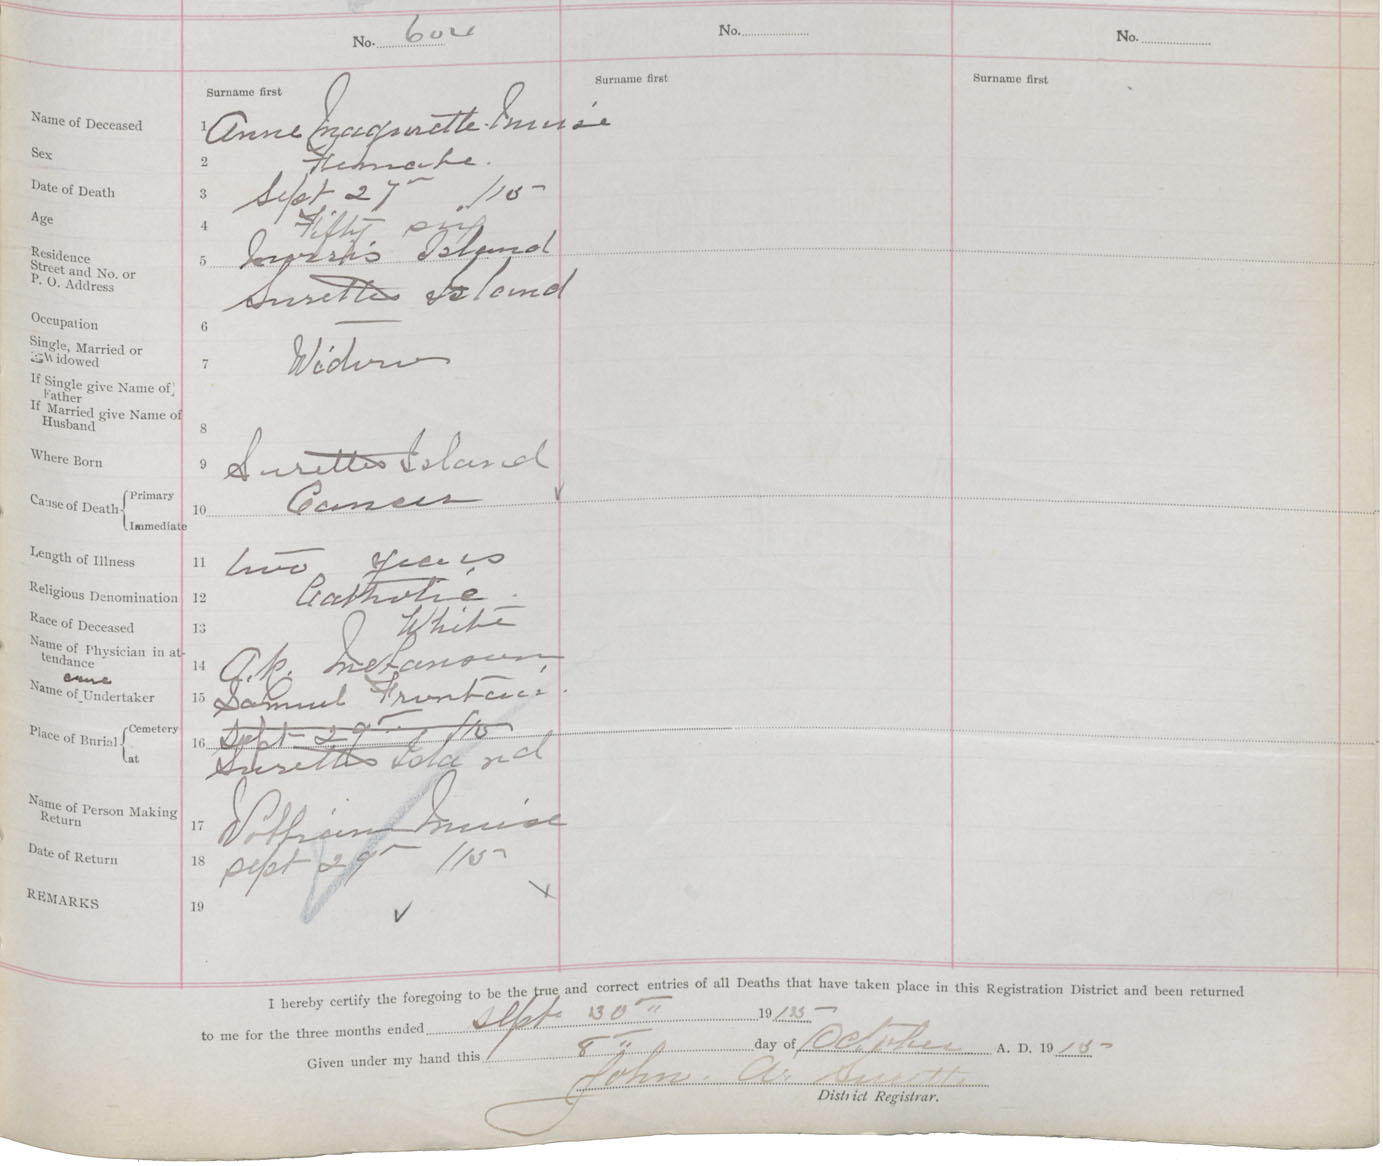 No. 604 No. No.
Surname first Surname first Surname first
Name of Deceased 1 Anne Maqurette Muise
Sex 2 Female.
Date of Death 3 Sept 27" /15
Age 4 Fifty six
Residence Street and No. or P. O. Address 5 Morris Island
Surettes Island
Occupation 6 —
Single, Married or Widowed 7 Widow
If Single give Name of Father
If Married give Name of Husband 8
Where Born 9 Surettes Island
Cause of Death { Primary Immediate 10 Cancer
Length of Illness 11 two years
Religious Denomination 12 Catholic.
Race of Deceased 13 White
Name of Physician in attendance 14 A.P. Melanson
Name of Undertaker 15 Samuel Frontain.
Place of Burial { Cemetery at 16 Sept 29" /15
Surettes Island
Name of Person Making Return 17 William Muise
Date of Return 18 sept 29" /15
REMARKS 19
I hereby certify the foregoing to be the true and correct entries of all Deaths that have taken place in this Registration District and been returned
to me for the three months ended Sept 30" 1915
Given under my hand this 8" day of October A. D. 1915
John. A. Surette
District Registrar.